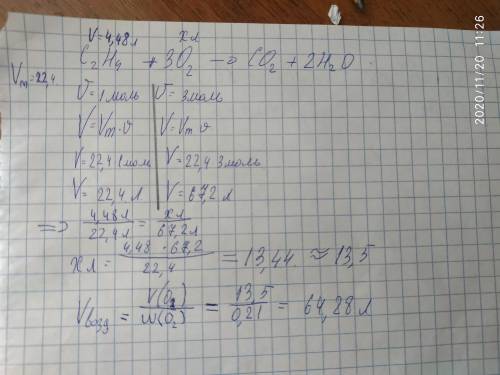 V=4,48л хл
C₂H₄ + 3O₂ → CO₂ + 2H₂O.
Vm=22,4.
υ=1моль υ=3моль
V=Vm·υ V=Vm υ
V=22,4 1мол V=22,4 3моль
V= 22,4 л V=67,2 л
=> 4,48л/22,4л = хл/67,2л
хл= 4,48·67,2/22,4 = 13,44 ≈ 13,5
Vвозд = V(O₂)/W(O₂) = 13,5/0,21 = 64,28л
2020/11/20 11:26